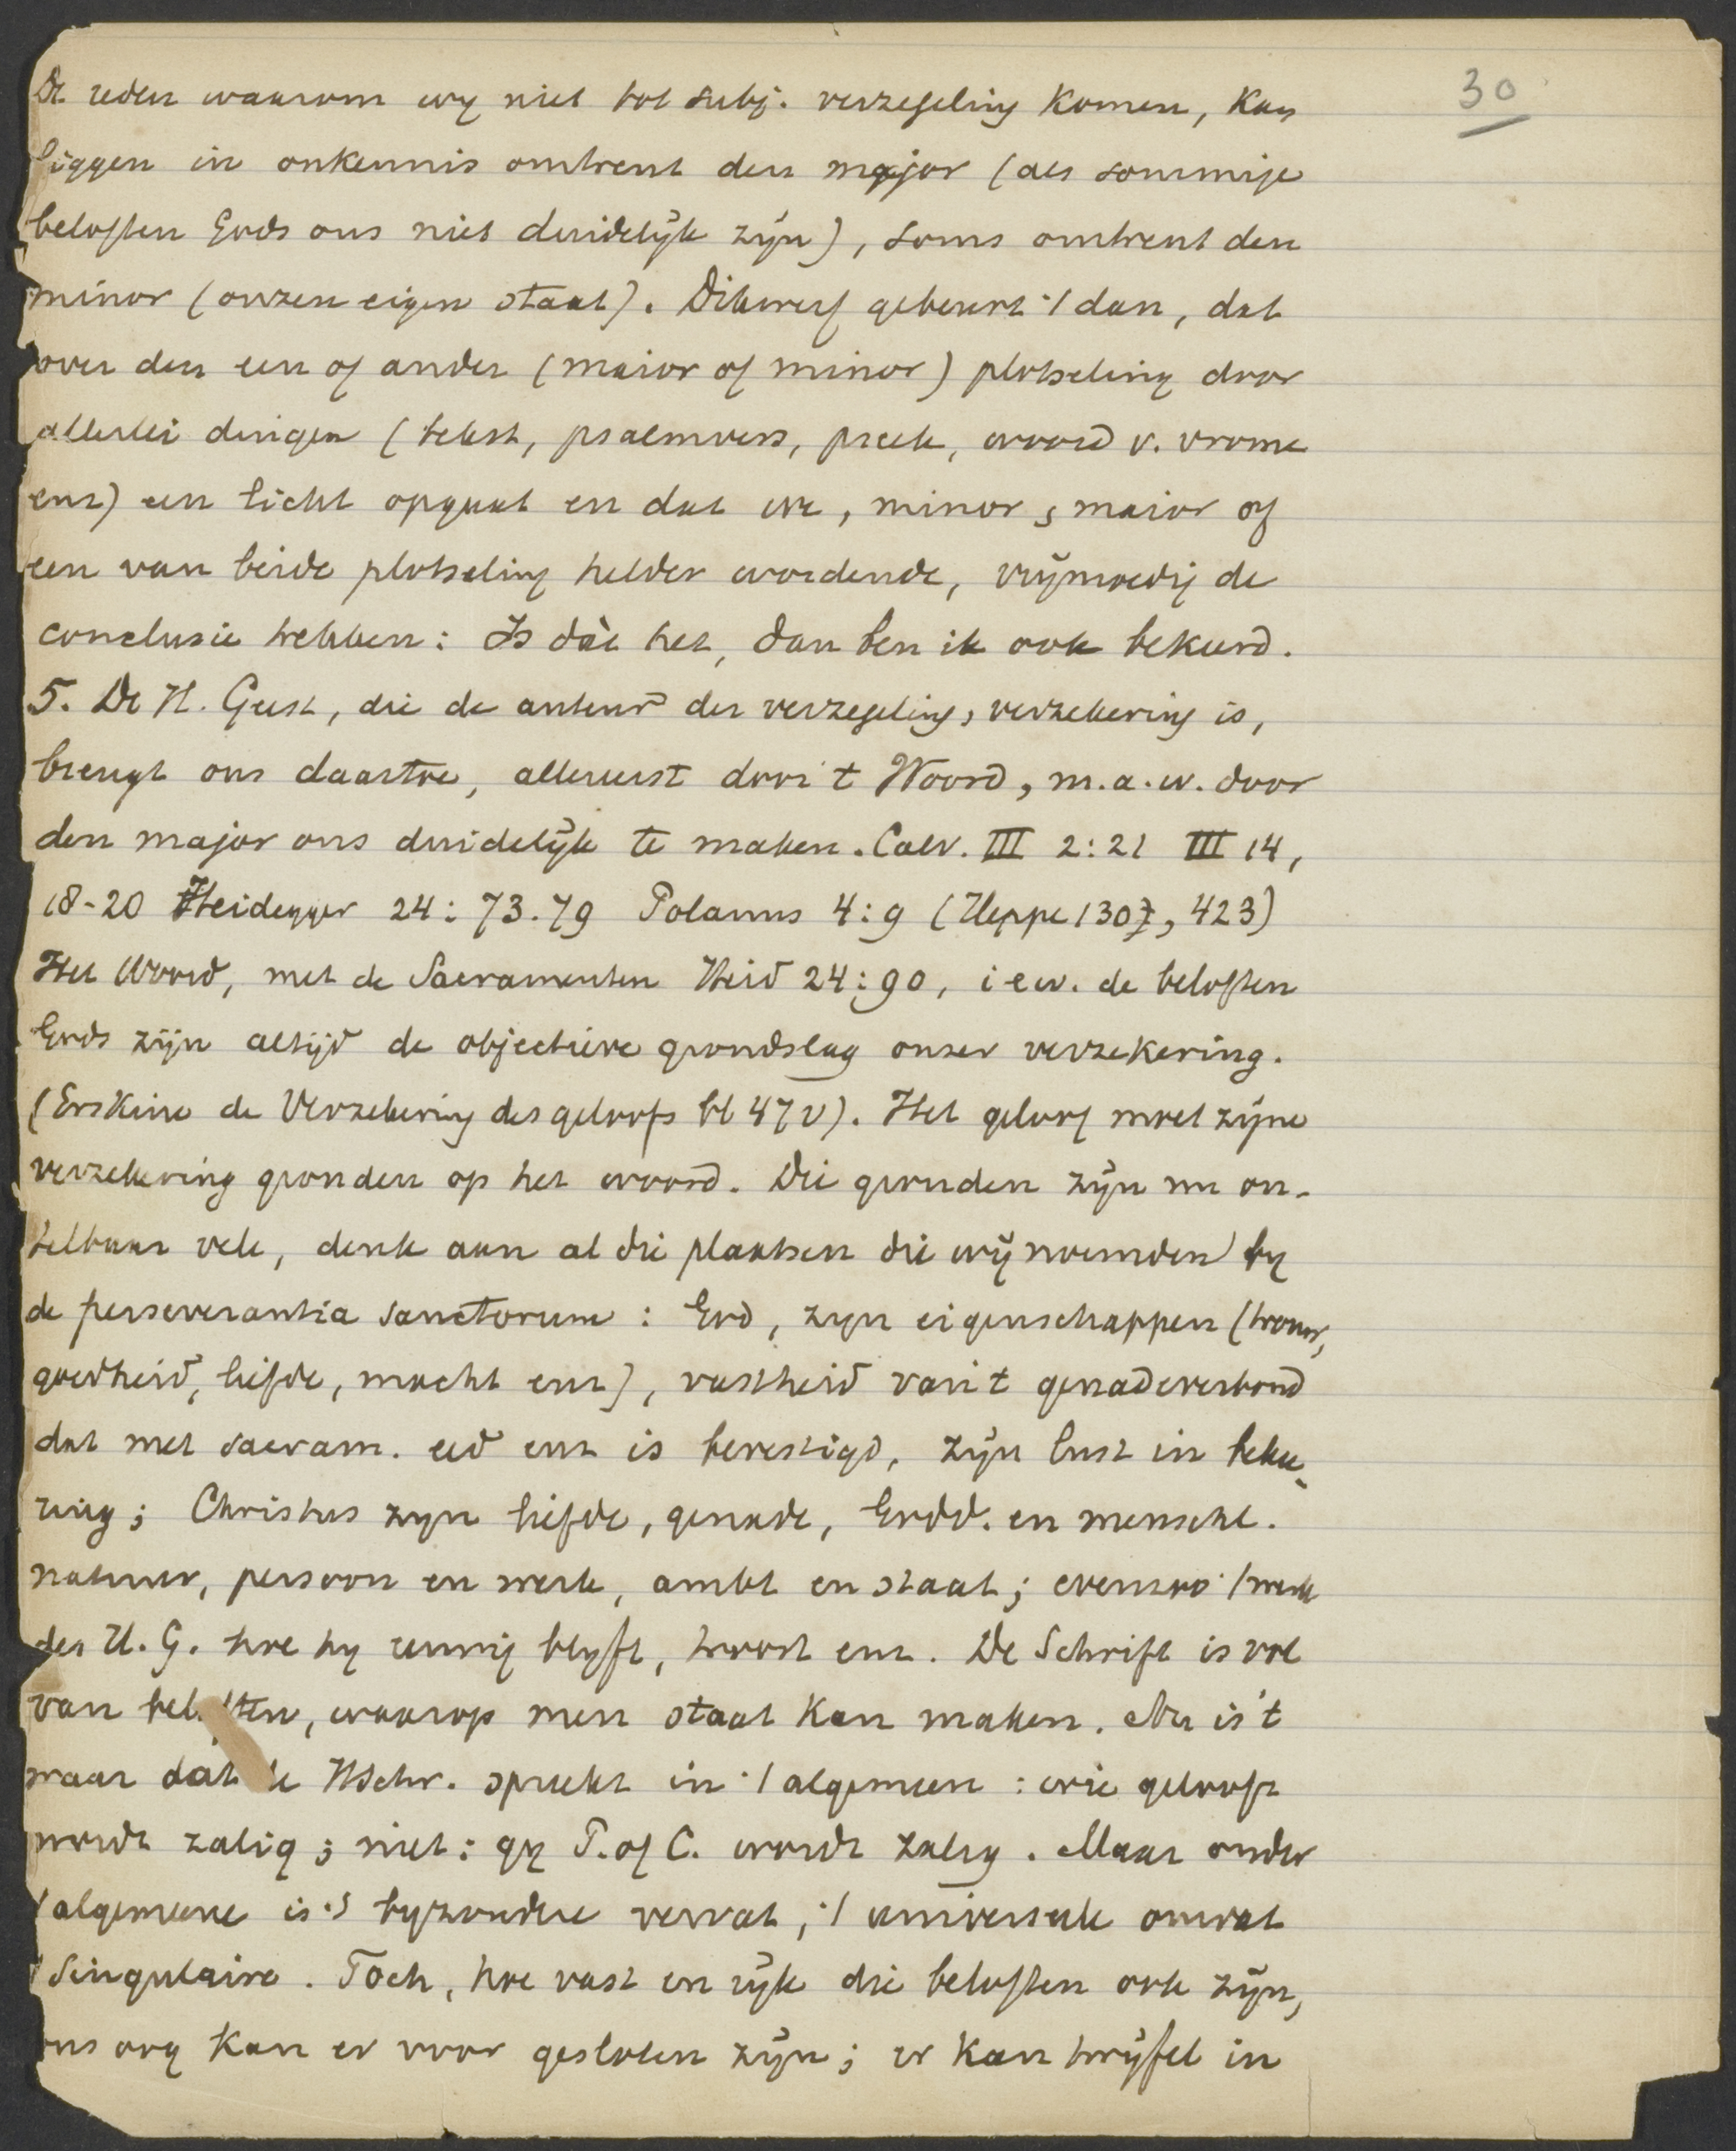 30
De reden waarom wy niet tot subj. verzegeling komen, kan
liggen in onkennis omtrent den major (als sommige
beloften Gods ons niet duidelijk zijn), soms omtrent den
minor (onzen eigen staat). Dikwerf gebeurt 't dan, dat
over den een of ander (maior of minor) plotseling door
allerlei dingen (tekst, psalmvers, preek, woord v. vrome
enz) een licht opgaat en dat we, minor, maior of
een van beide plotseling helder wordende, vrijmoedig de
conclusie hebben: Is dàt het, dan ben ik ook bekeerd.
5. De H. Geest, die de auteur der verzegeling, verzekering is,
brengt ons daartoe, allereerst door 't Woord, m.a.w. door
den major ons duidelijk te maken. Calv. III 2:21 III 14,
18-20 Heidegger 24: 73.79 Polanus 4:9 (Heppe 1307, 423)
Het Woord, met de Sacramenten Heid 24:90, i e w. de beloften
Gods zijn altijd de objectieve grondslag onzer verzekering.
(Erskine de Verzekering des geloofs bl 47v). Het geloof moet zijne
verzekering gronden op het woord. Die gronden zijn nu on-
telbaar vele, denk aan al die plaatsen die wij noemden by
de perseverantia sanctorum: God, zyn eigenschappen (trouw,
goedheid, liefde, macht enz), vastheid van 't genadeverbond
dat met sacram. eed enz is bevestigd, zijn lust in bekee-
ring; Christus zyn liefde, genade, Godd. en menschl.
natuur, persoon en werk, ambt en staat; evenzoo 't werk
des H. G. hoe hy eeuwig blyft, troost enz. De Schrift is vol
van beloften, waarop men staat kan maken. Nu is 't
waar dat de HSchr. spreekt in 't algemeen: wie gelooft
wordt zalig; niet: gy P. of C. wordt zalig. Maar onder
't algemeene is 't byzondere vervat, 't universeele omvat
't singulaire. Toch, hoe vast en rijk die beloften ook zijn,
ons oog kan er voor gesloten zijn; er kan twijfel in